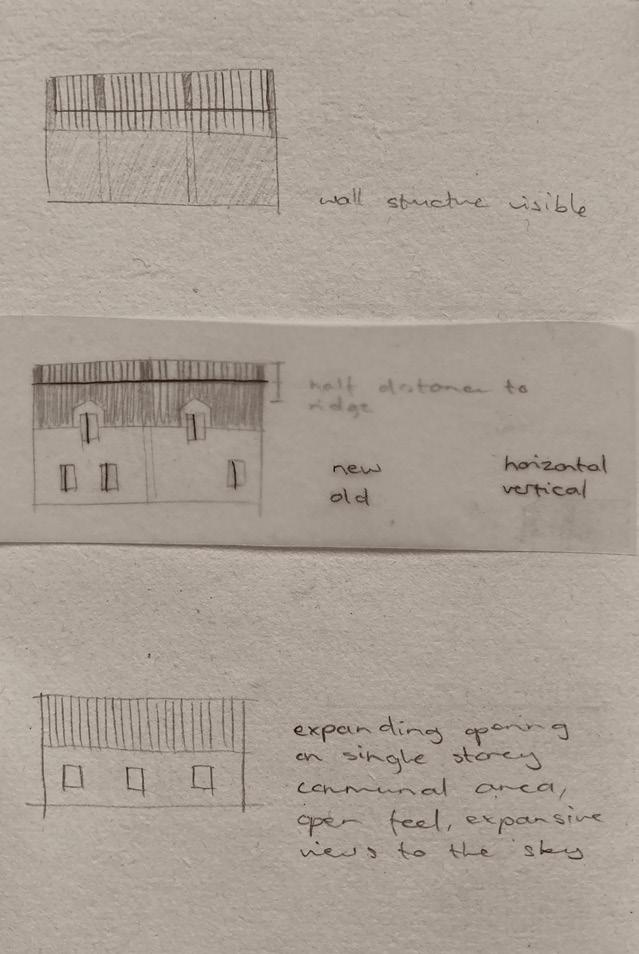 wall structure visible
half distance to
ridge
new
old
horizontal
vertical
expanding opening
on single storey
communal area,
open feel, expansive
views to the sky